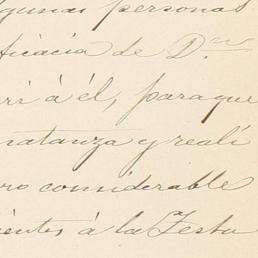 lgunas personas
ticacia de D.n
ri á él, para que
matanza y reali
ro considerable
ientes á la Testa